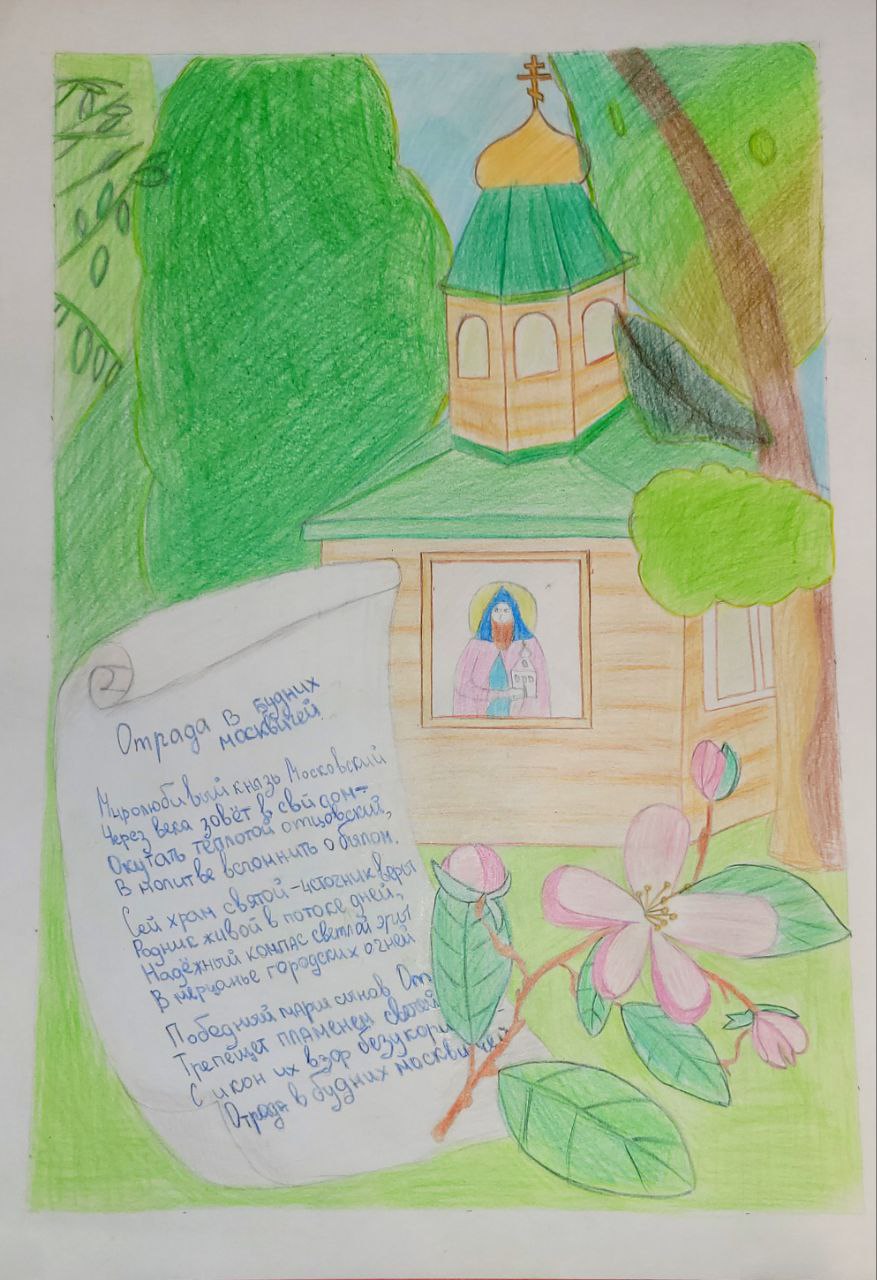 Отрада в будних
москвичей
Миролюбивый князь Московский
Через века зовёт в свой дом –
Окутать теплотой отцовский,
В молитве вспомнить о былом.
Сей храм святой – источник веры
Родник живой в потоке дней,
Надёжный компас светлой эры
В мерцанье городских огней
Победный марш сынов
Трепещет пламенем свечей
С икон их взор
Отрада в будних москвичей